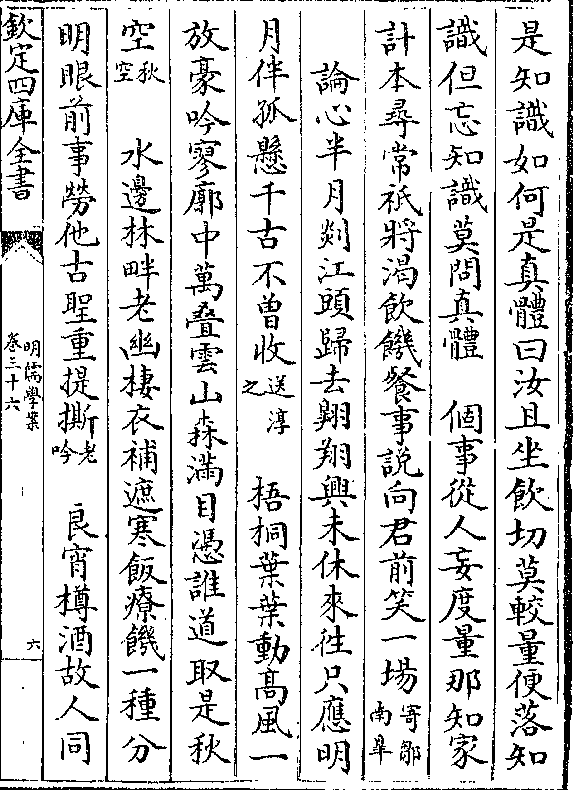 是知識如何是真體曰汝且坐飲切莫較量便落知
識但忘知識莫問真體　個事從人妄度量那知家
計本尋常祇將渴飲饑餐事說向君前笑一場寄鄒南臯
論心半月剡江頭歸去翺翔興未休來往只應明
月伴孤懸千古不曾收送淳之　梧桐葉葉動髙風一
放豪吟寥廓中萬叠雲山森滿目憑誰道取是秋
空秋空　水邊林畔老幽棲衣補遮寒飯療饑一種分
明眼前事勞他古聖重提撕老吟　良宵樽酒故人同
欽定四庫全書
明儒學案
卷三十六
六